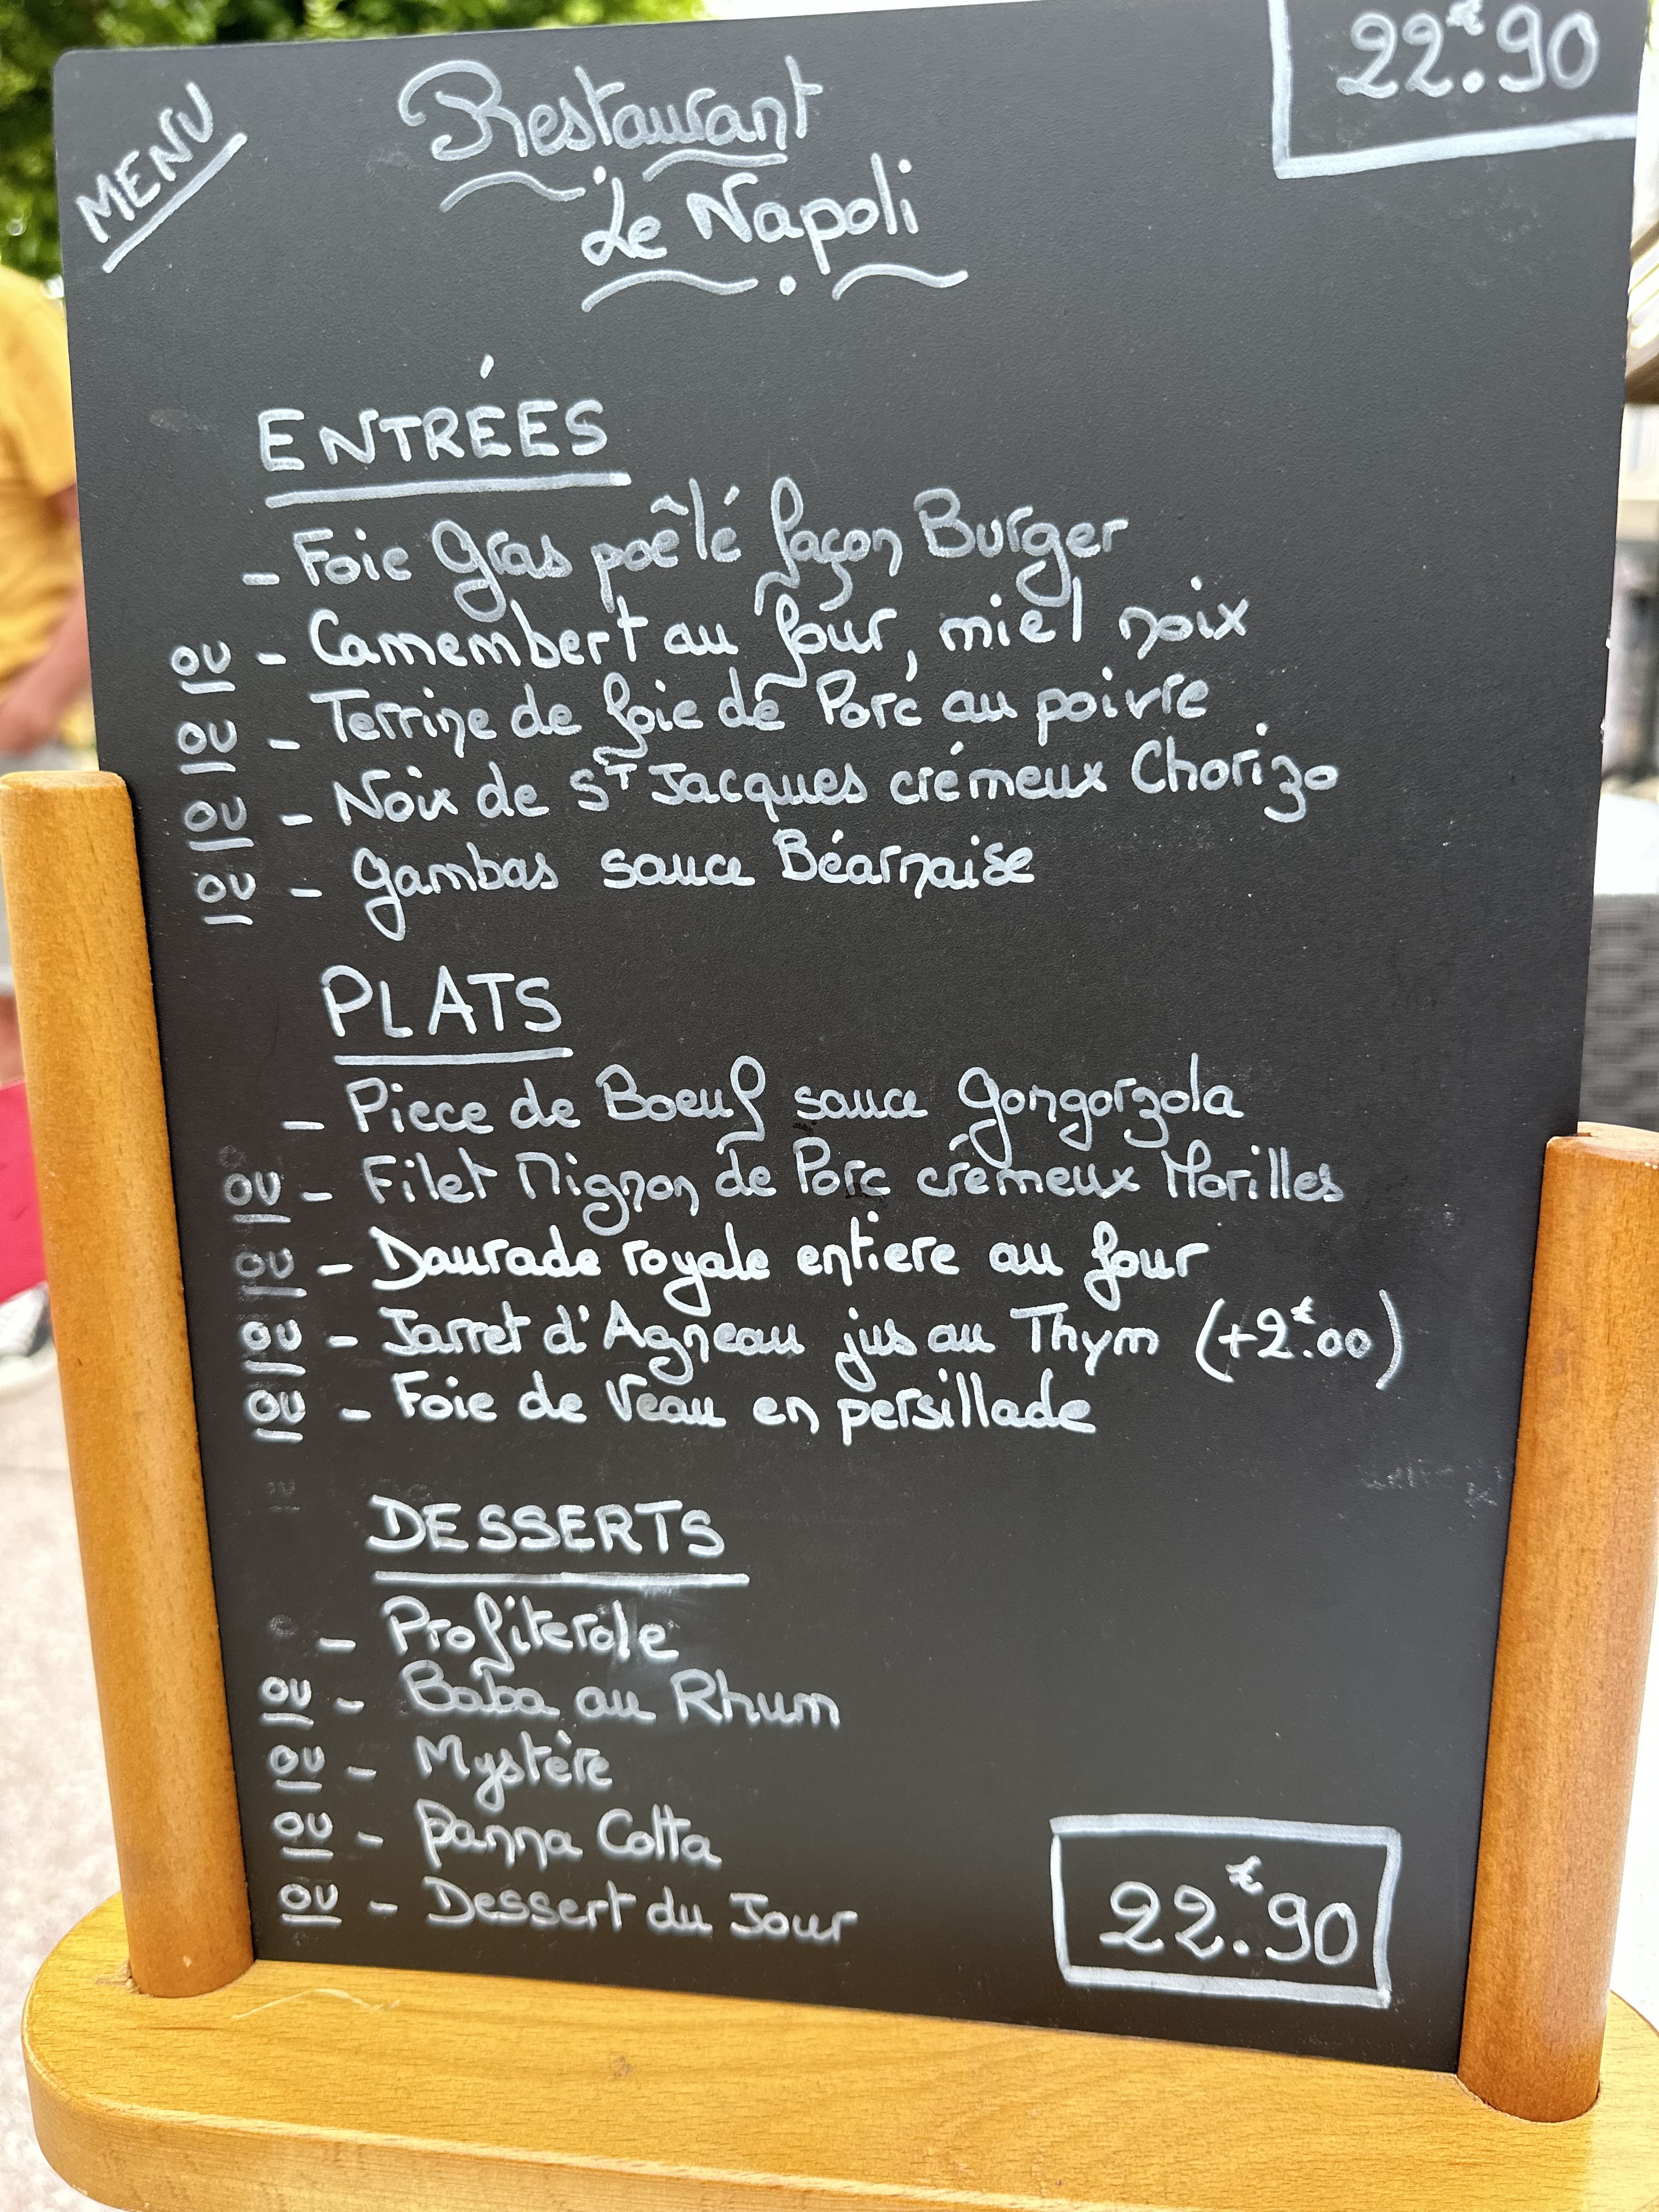 MENU
22€.90
Restaurant
Le Napoli
ENTRÉES
- Foie Gras poêlé façon Burger
ou - Camembert au four, miel noix
ou - Terrine de foie de Porc au poivre
ou - Noix de ST Jacques crémeux Chorizo
ou - Gambas sauce Béarnaise
PLATS
- Piece de Boeuf sauce Gongorzola
ou - Filet Mignon de Porc crémeux Morilles
ou - Daurade royale entiere au four
ou - Jarret d'Agneau jus au Thym (+2€.00)
ou - Foie de Veau en persillade
DESSERTS
- Profiterole
ou - Baba au Rhum
ou - Mystère
ou - Panna Cotta
ou - Dessert du Jour
22€.90